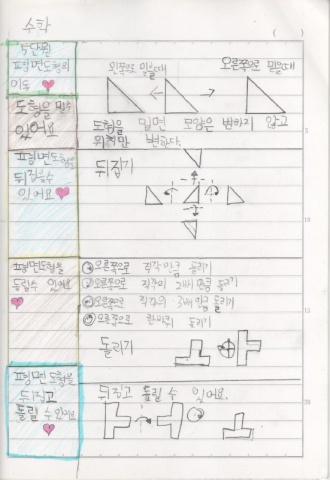 수학
( )
4단원
평면도형의
이동
왼쪽으로 밀때
오른쪽으로 밀때
도형을 밀수
있어요
도형을 밀면 모양은 변하지 않고
위치만 변하다.
평면도형을
뒤집을수
있어요
뒤집기
평면도형을
돌릴수 있어요
오른쪽으로 직각만큼 돌리기
오른쪽으로 직각의 2배만큼 돌리기
오른쪽으로 직각의 3배만큼 돌리기
오른쪽으로 한바퀴 돌리기
돌리기
평면도형을
뒤집고
돌릴 수 있어요
뒤집고 돌릴 수 있어요.